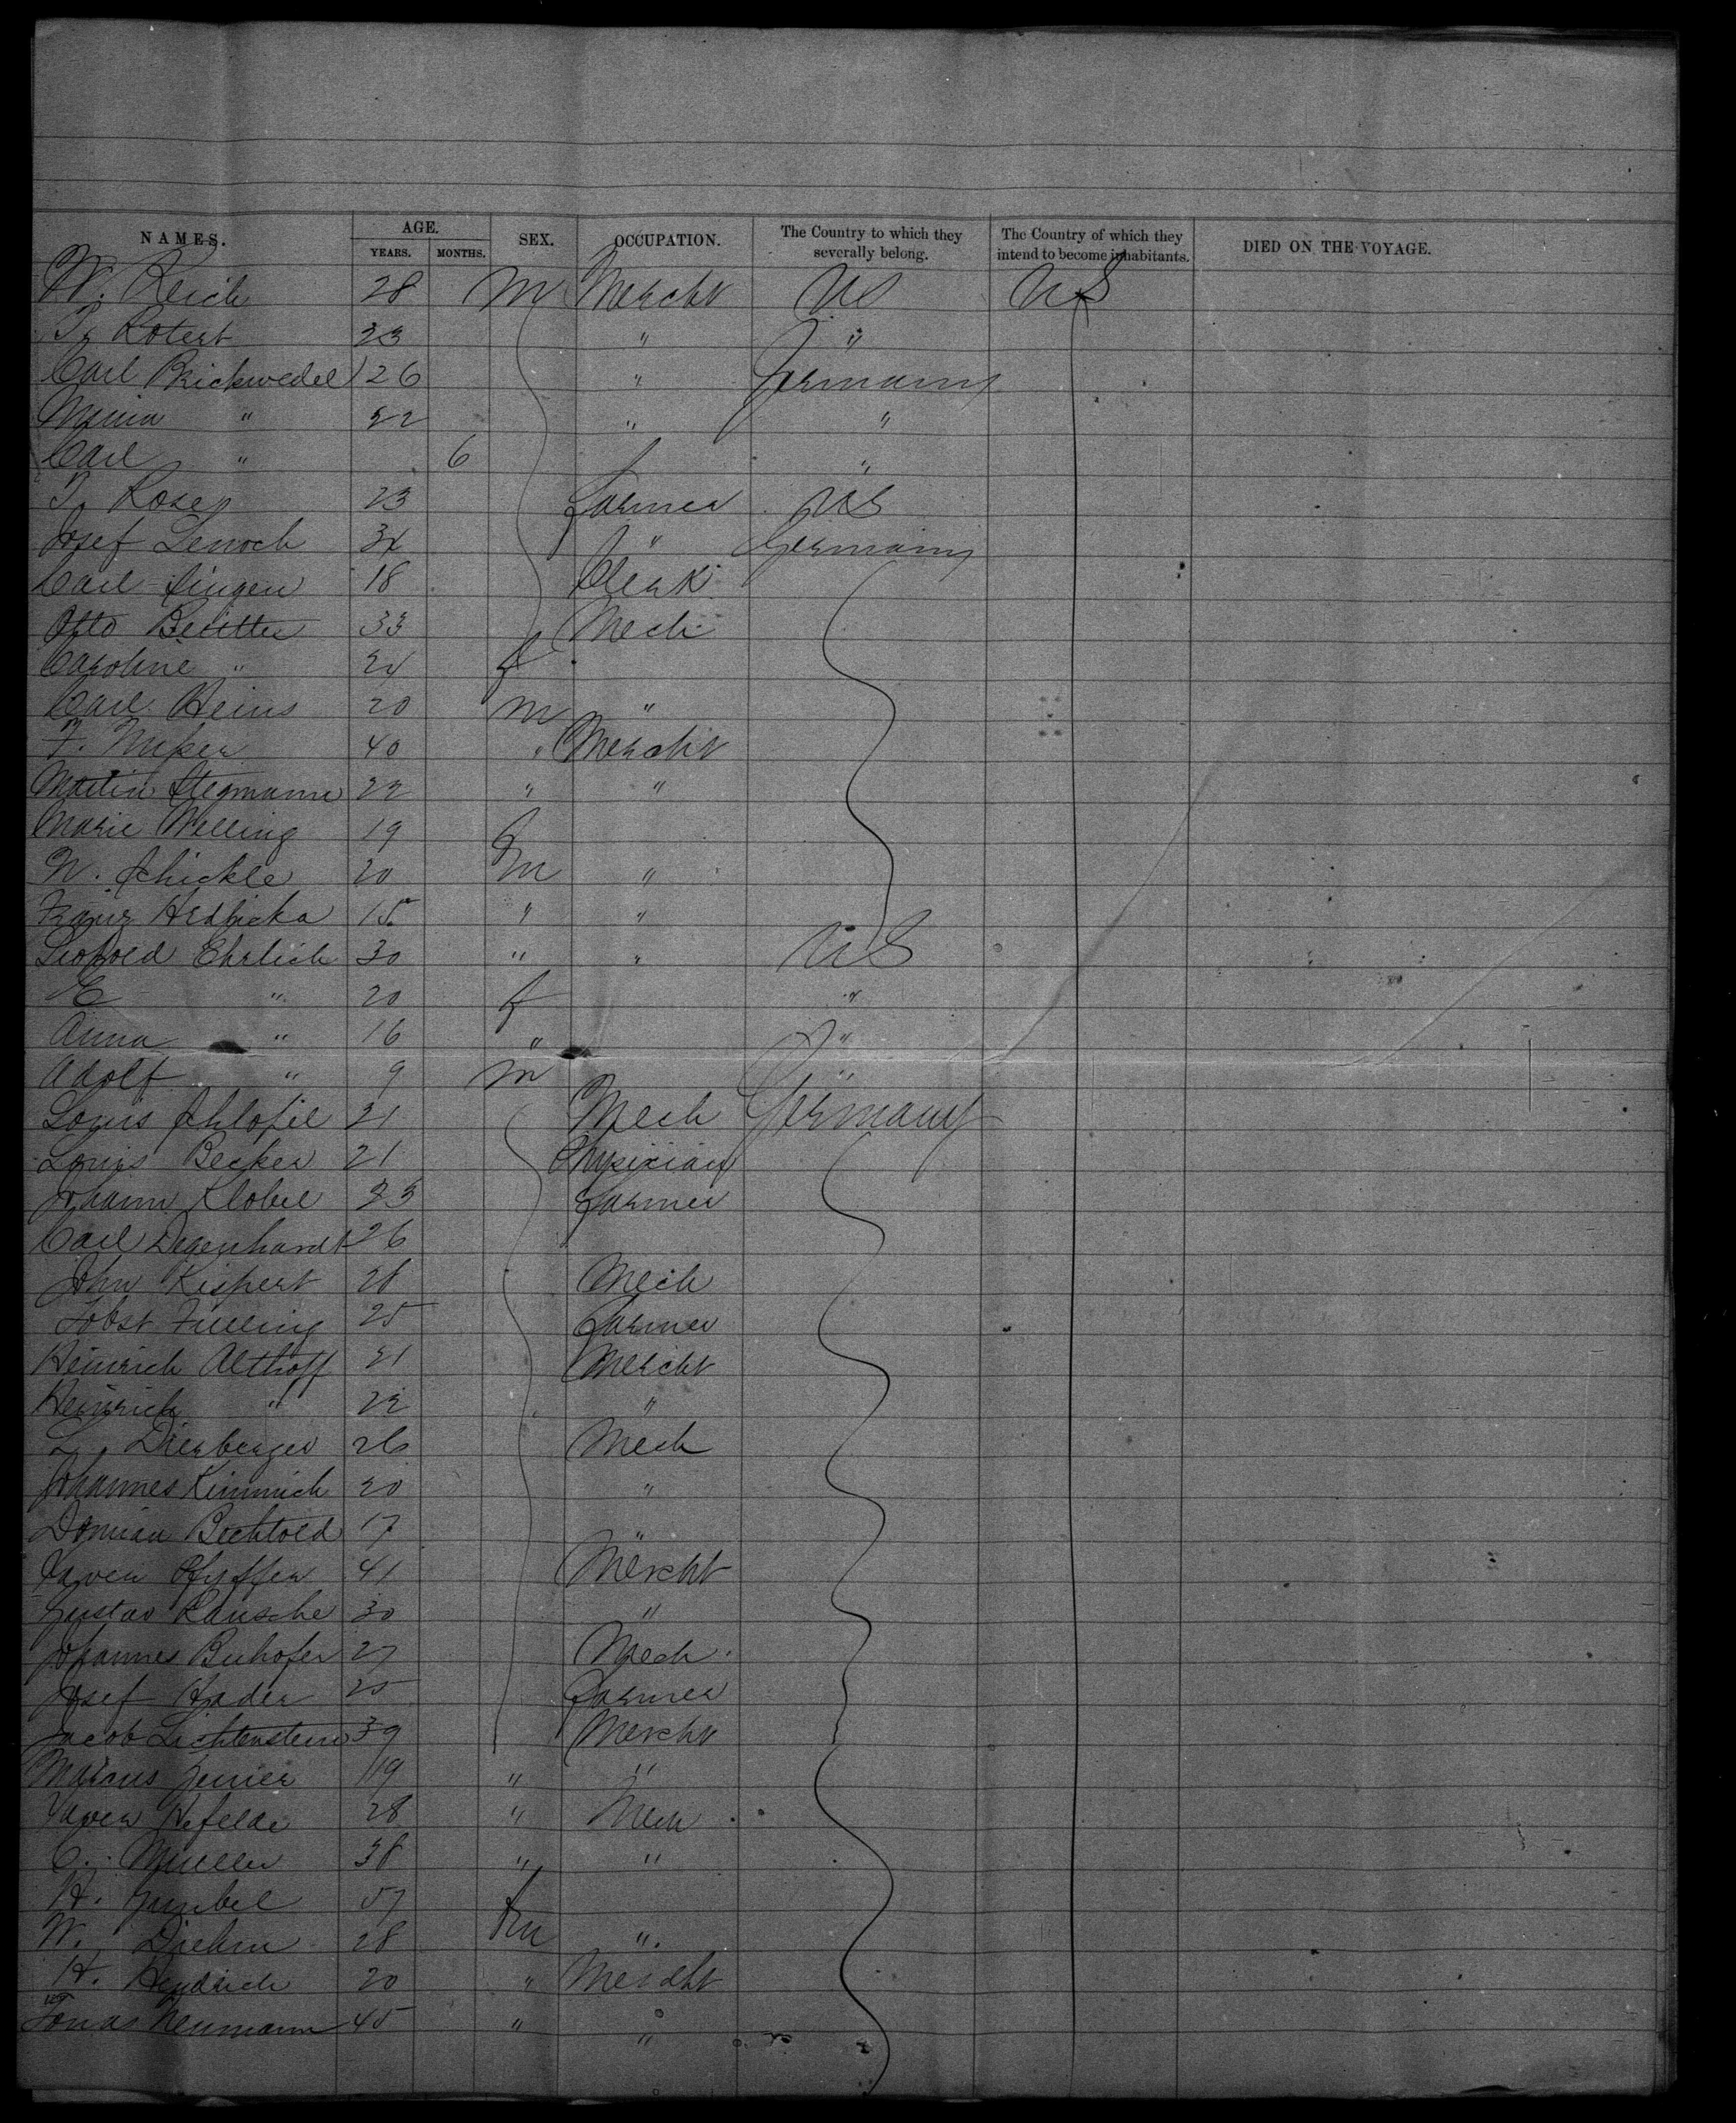 NAMES. AGE. SEX. OCCUPATION. The Country to which they severally belong. The Country of which they intend to become inhabitants. DIED ON THE VOYAGE.
YEARS. MONTHS.
W. Reich 28 m Mercht US US
Rotert 23 " "
Carl Brickwedel 26 " Germany
" 22 " "
Carl " 6 "
Rosen 23 Farmer US
Josef Lenoch 34 " Germany
Carl Singen 18 Clerk
Otto 33 Mech
Caroline " 24 f
Carl Heins 20 m "
F. 40 " Mercht
Martin Stegmann 22 " "
Marie Welling 19 f
W. Schickle 20 m "
Franz Hrdlicka 15 " "
Leopold Ehrlich 30 " " US
E " 20 f "
Anna " 16 " "
Adolf " 9 m "
Louis 21 Mech Germany
Louis Becker 21 Physician
Johann Klobel 33 Farmer
Carl Degenhardt 26
John Kispert 28 Mech
Jobst Fuelling 25 Farmer
Heinrich Althoff 21 Mercht
Heinrich " 22 "
L. Dierberger 26 Mech
Johannes Kimmich 20 "
Damian Bechtold 17 "
Xaver Pfyffer 41 Mercht
Gustav Rausche 30 "
Johannes Buhofer 27 Mech
Josef Hader 25 Farmer
Jacob Lichtenstein 39 Mercht
Marcus 19 " "
Xaver Hefelde 28 " Mech
C. Mueller 38 " "
H. Gumbel 57 f
W. Diehm 28 m "
H. Heydrich 20 " Mercht
Jonas Neumann 45 " "